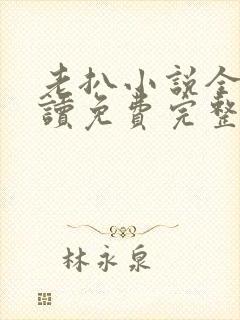 老扒小説全
讀免費完整
林永泉